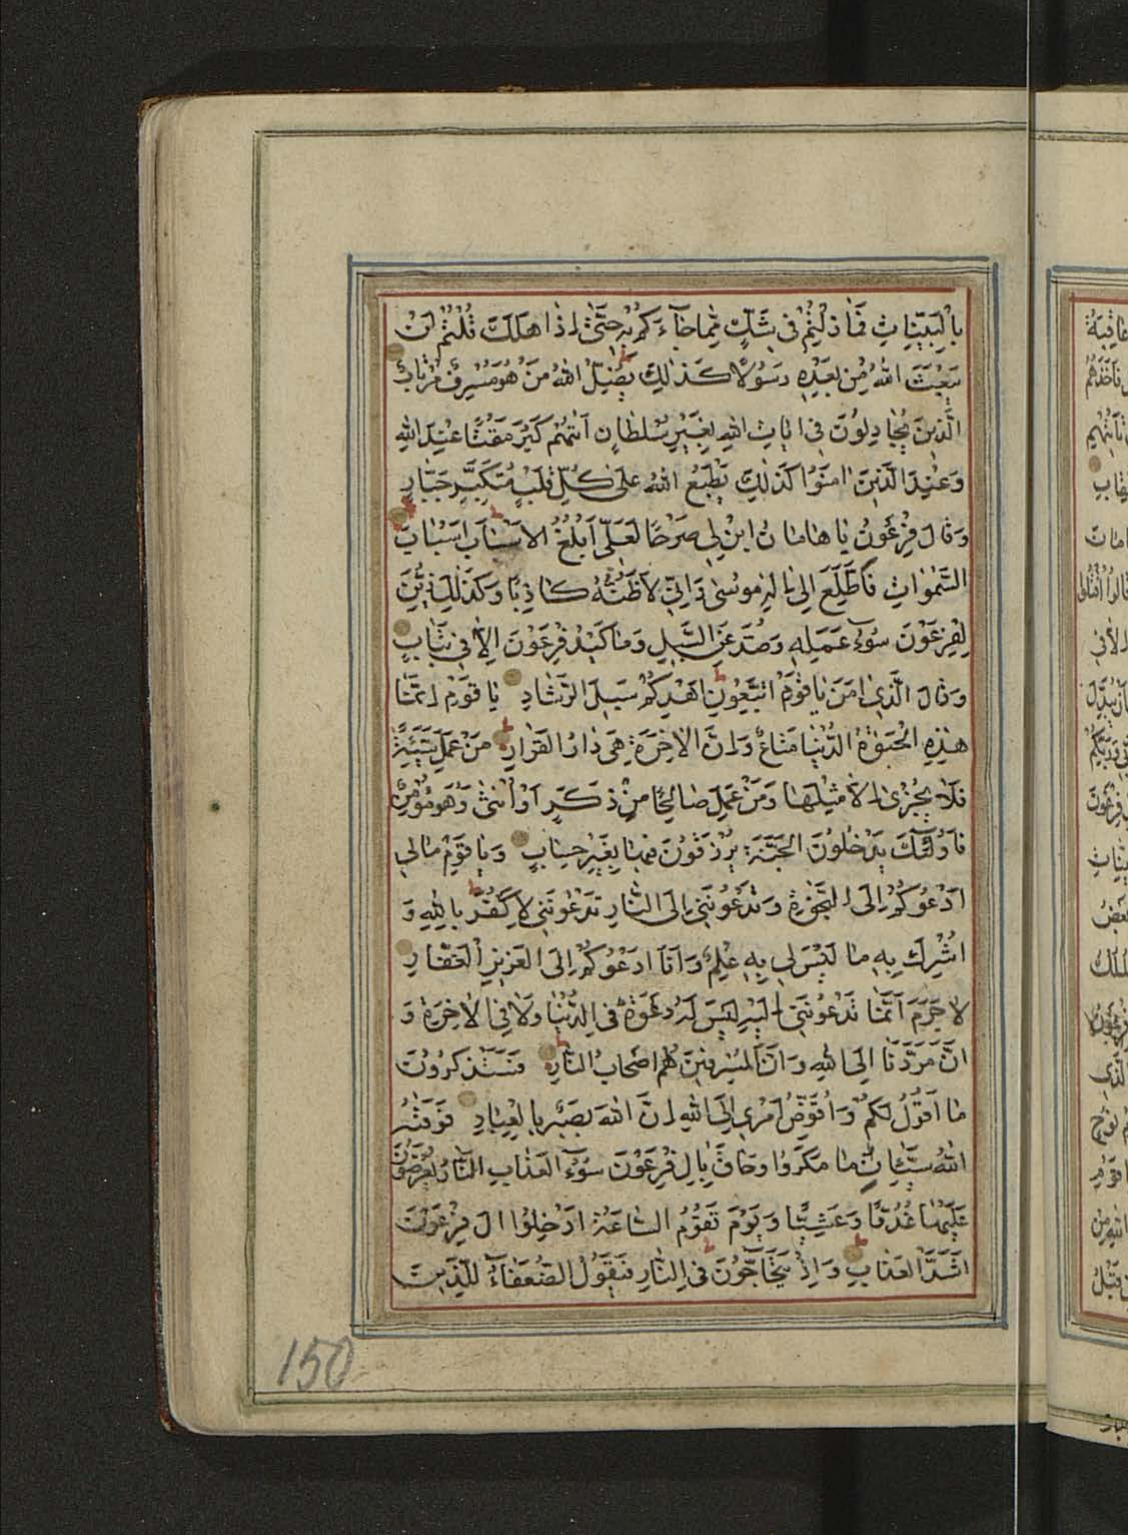 بِالْبَيِّنَاتِ فَمَا زِلْتُمْ فِي شَكٍّ مِمَّا جَاءَكُمْ بِهِ حَتَّىٰ إِذَا هَلَكَ قُلْتُمْ لَنْ
يَبْعَثَ اللهُ مِنْ بَعْدِهِ رَسُولًا كَذَٰلِكَ يُضِلُّ اللهُ مَنْ هُوَ مُسْرِفٌ مُرْتَابٌ
الَّذِينَ يُجَادِلُونَ فِي ايَاتِ اللهِ بِغَيْرِ سُلْطَانٍ اَتٰيهُمْ كَبُرَ مَقْتًا عِنْدَ اللهِ
وَعِنْدَ الَّذِينَ امَنُوا كَذَٰلِكَ يَطْبَعُ اللهُ عَلَىٰ كُلِّ قَلْبِ مُتَكَبِّرٍ جَبَّارٍ
وَقَالَ فِرْعَوْنُ يَا هَامَانُ ابْنِ لِي صَرْحًا لَعَلِّي اَبْلُغُ الْاَسْبَابَ اَسْبَابَ
السَّمٰوَاتِ فَاَطَّلِعَ اِلىٰ اِلٰهِ مُوسىٰ وَاِنِّي لَاَظُنُّهُ كَاذِبًا وَكَذَٰلِكَ زُيِّنَ
لِفِرْعَوْنَ سُوءُ عَمَلِهِ وَصُدَّ عَنِ السَّبِيلِ وَمَا كَيْدُ فِرْعَوْنَ اِلَّا فِي تَبَابٍ
وَقَالَ الَّذِي امَنَ يَا قَوْمِ اتَّبِعُونِ اَهْدِكُمْ سَبِيلَ الرَّشَادِ يَا قَوْمِ اِنَّمَا
هٰذِهِ الْحَيٰوةُ الدُّنْيَا مَتَاعٌ وَاِنَّ الْاخِرَةَ هِيَ دَارُ الْقَرَارِ مَنْ عَمِلَ سَيِّئَةً
فَلَا يُجْزىٰ اِلَّا مِثْلَهَا وَمَنْ عَمِلَ صَالِحًا مِنْ ذَكَرٍ اَوْ اُنْثىٰ وَهُوَ مُؤْمِنٌ
فَاُولٰئِكَ يَدْخُلُونَ الْجَنَّةَ يُرْزَقُونَ فِيهَا بِغَيْرِ حِسَابٍ وَيَا قَوْمِ مَا لِي
اَدْعُوكُمْ اِلَى النَّجٰوةِ وَتَدْعُونَنِي اِلَى النَّارِ تَدْعُونَنِي لِاَكْفُرَ بِاللهِ وَ
اُشْرِكَ بِهِ مَا لَيْسَ لِي بِهِ عِلْمٌ وَاَنَا اَدْعُوكُمْ اِلَى الْعَزِيزِ الْغَفَّارِ
لَا جَرَمَ اَنَّمَا تَدْعُونَنِي اِلَيْهِ لَيْسَ لَهُ دَعْوَةٌ فِي الدُّنْيَا وَلَا فِي الْاخِرَةِ وَ
اَنَّ مَرَدَّنَا اِلَى اللهِ وَاَنَّ الْمُسْرِفِينَ هُمْ اَصْحَابُ النَّارِ فَسَتَذْكُرُونَ
مَا اَقُولُ لَكُمْ وَاُفَوِّضُ اَمْرِي اِلَى اللهِ اِنَّ اللهَ بَصِيرٌ بِالْعِبَادِ فَوَقٰيهُ
اللهُ سَيِّئَاتِ مَا مَكَرُوا وَحَاقَ بِالِ فِرْعَوْنَ سُوءُ الْعَذَابِ النَّارُ يُعْرَضُونَ
عَلَيْهَا غُدُوًّا وَعَشِيًّا وَيَوْمَ تَقُومُ السَّاعَةُ اَدْخِلُوا الَ فِرْعَوْنَ
اَشَدَّ الْعَذَابِ وَاِذْ يَتَحَاجُّونَ فِي النَّارِ فَيَقُولُ الضُّعَفَاءُ لِلَّذِينَ
150